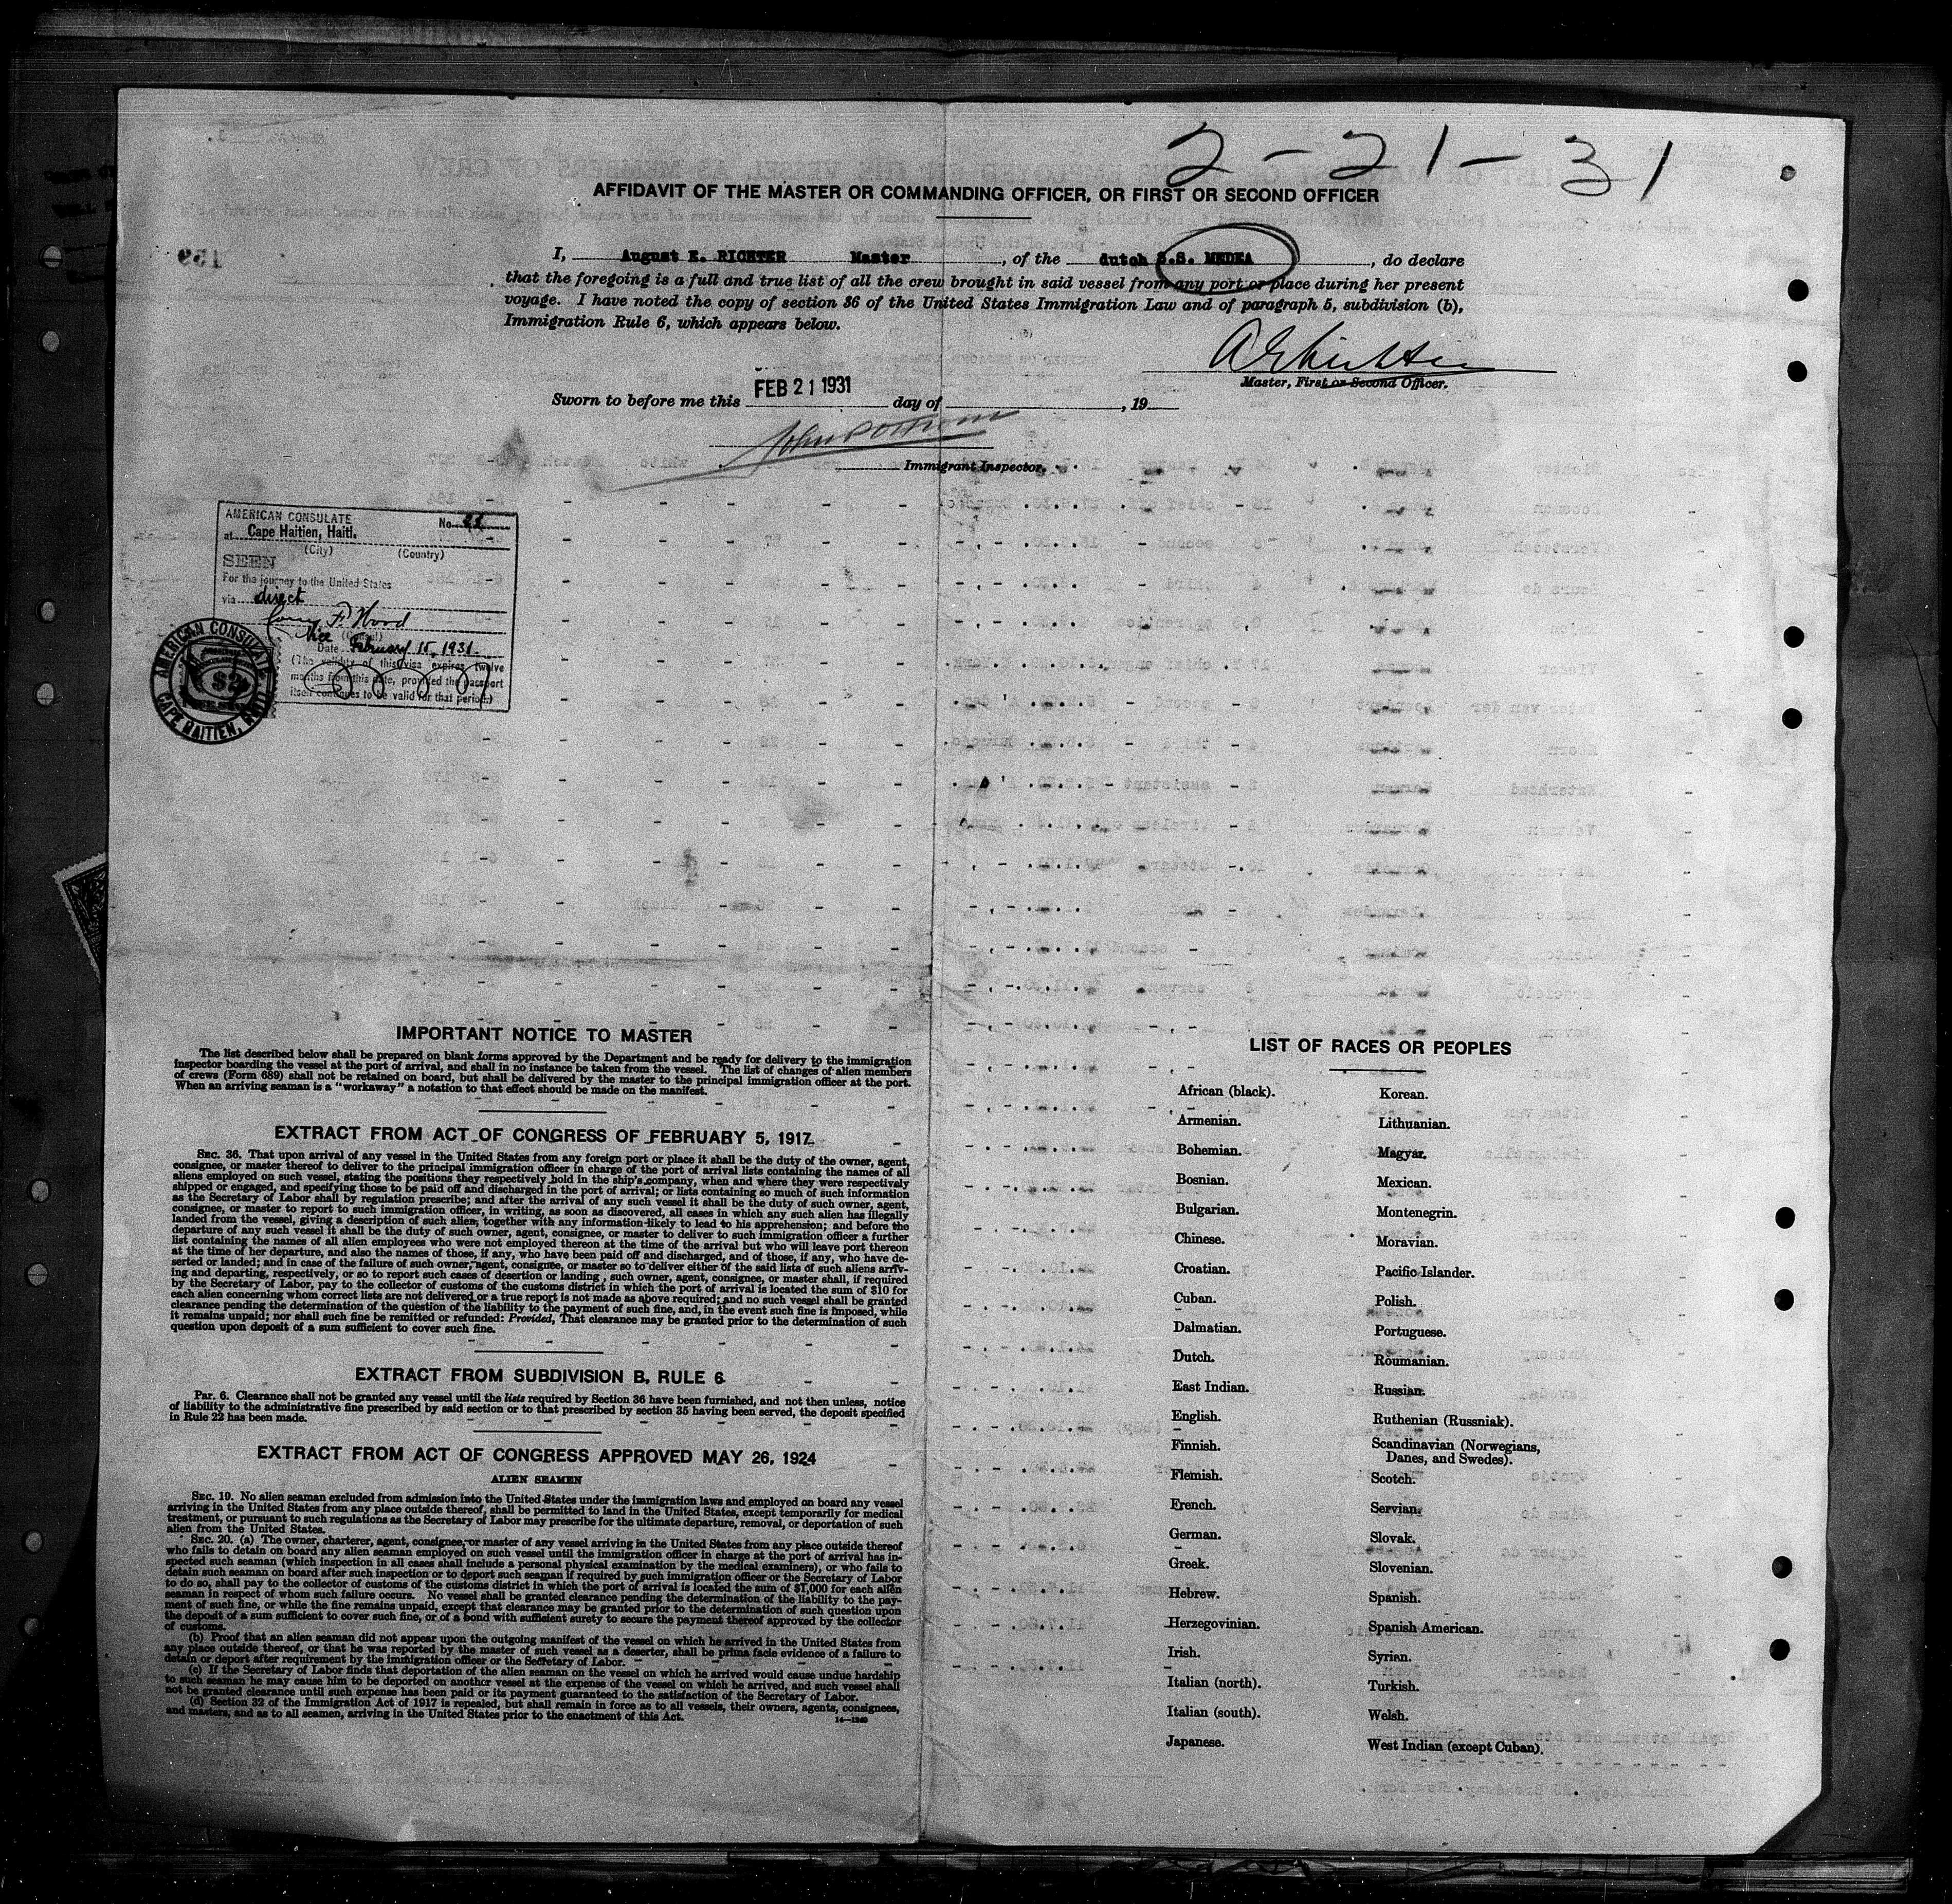 2-21-31
AFFIDAVIT OF THE MASTER OR COMMANDING OFFICER, OR FIRST OR SECOND OFFICER
I, August E. RICHTER Master, of the dutch S.S. MEDEA, do declare
that the foregoing is a full and true list of all the crew brought in said vessel from any port or place during her present
voyage. I have noted the copy of section 36 of the United States Immigration Law and of paragraph 5, subdivision (b),
Immigration Rule 6, which appears below.
Master, First or Second Officer.
Sworn to before me this FEB 21 1931 day of , 19
Immigrant Inspector.
AMERICAN CONSULATE No.
at Cape Haitien, Haiti.
(City) (Country)
SEEN
For the journey to the United States
via direct
F. Wood
Vice (Consul)
Date February 15, 1931.
(The validity of this visa expires twelve
months from this date, provided the passport
itself continues to be valid for that period.)
AMERICAN CONSULATE
CAPE HAITIEN, HAITI
$2
IMPORTANT NOTICE TO MASTER
The list described below shall be prepared on blank forms approved by the Department and be ready for delivery to the immigration
inspector boarding the vessel at the port of arrival, and shall in no instance be taken from the vessel. The list of changes of alien members
of crews (Form 689) shall not be retained on board, but shall be delivered by the master to the principal immigration officer at the port.
When an arriving seaman is a "workaway" a notation to that effect should be made on the manifest.
EXTRACT FROM ACT OF CONGRESS OF FEBRUARY 5, 1917.
SEC. 36. That upon arrival of any vessel in the United States from any foreign port or place it shall be the duty of the owner, agent,
consignee, or master thereof to deliver to the principal immigration officer in charge of the port of arrival lists containing the names of all
aliens employed on such vessel, stating the positions they respectively hold in the ship's company, when and where they were respectively
shipped or engaged, and specifying those to be paid off and discharged in the port of arrival; or lists containing so much of such information
as the Secretary of Labor shall by regulation prescribe; and after the arrival of any such vessel it shall be the duty of such owner, agent,
consignee, or master to report to such immigration officer, in writing, as soon as discovered, all cases in which any such alien has illegally
landed from the vessel, giving a description of such alien, together with any information likely to lead to his apprehension; and before the
departure of any such vessel it shall be the duty of such owner, agent, consignee, or master to deliver to such immigration officer a further
list containing the names of all alien employees who were not employed thereon at the time of the arrival but who will leave port thereon
at the time of her departure, and also the names of those, if any, who have been paid off and discharged, and of those, if any, who have de-
serted or landed; and in case of the failure of such owner, agent, consignee, or master so to deliver either of the said lists of such aliens arriv-
ing and departing, respectively, or so to report such cases of desertion or landing, such owner, agent, consignee, or master shall, if required
by the Secretary of Labor, pay to the collector of customs of the customs district in which the port of arrival is located the sum of $10 for
each alien concerning whom correct lists are not delivered or a true report is not made as above required; and no such vessel shall be granted
clearance pending the determination of the question of the liability to the payment of such fine, and, in the event such fine is imposed, while
it remains unpaid; nor shall such fine be remitted or refunded: Provided, That clearance may be granted prior to the determination of such
question upon deposit of a sum sufficient to cover such fine.
EXTRACT FROM SUBDIVISION B, RULE 6
Par. 6. Clearance shall not be granted any vessel until the lists required by Section 36 have been furnished, and not then unless, notice
of liability to the administrative fine prescribed by said section or to that prescribed by section 35 having been served, the deposit specified
in Rule 22 has been made.
EXTRACT FROM ACT OF CONGRESS APPROVED MAY 26, 1924
ALIEN SEAMEN
SEC. 19. No alien seaman excluded from admission into the United States under the immigration laws and employed on board any vessel
arriving in the United States from any place outside thereof, shall be permitted to land in the United States, except temporarily for medical
treatment, or pursuant to such regulations as the Secretary of Labor may prescribe for the ultimate departure, removal, or deportation of such
alien from the United States.
SEC. 20. (a) The owner, charterer, agent, consignee, or master of any vessel arriving in the United States from any place outside thereof
who fails to detain on board any alien seaman employed on such vessel until the immigration officer in charge at the port of arrival has in-
spected such seaman (which inspection in all cases shall include a personal physical examination by the medical examiners), or who fails to
detain such seaman on board after such inspection or to deport such seaman if required by such immigration officer or the Secretary of Labor
to do so, shall pay to the collector of customs of the customs district in which the port of arrival is located the sum of $1,000 for each alien
seaman in respect of whom such failure occurs. No vessel shall be granted clearance pending the determination of the liability to the pay-
ment of such fine, or while the fine remains unpaid, except that clearance may be granted prior to the determination of such question upon
the deposit of a sum sufficient to cover such fine, or of a bond with sufficient surety to secure the payment thereof approved by the collector
of customs.
(b) Proof that an alien seaman did not appear upon the outgoing manifest of the vessel on which he arrived in the United States from
any place outside thereof, or that he was reported by the master of such vessel as a deserter, shall be prima facie evidence of a failure to
detain or deport after requirement by the immigration officer or the Secretary of Labor.
(c) If the Secretary of Labor finds that deportation of the alien seaman on the vessel on which he arrived would cause undue hardship
to such seaman he may cause him to be deported on another vessel at the expense of the vessel on which he arrived, and such vessel shall
not be granted clearance until such expense has been paid or its payment guaranteed to the satisfaction of the Secretary of Labor.
(d) Section 32 of the Immigration Act of 1917 is repealed, but shall remain in force as to all vessels, their owners, agents, consignees,
and masters, and as to all seamen, arriving in the United States prior to the enactment of this Act.
14—1240
LIST OF RACES OR PEOPLES
African (black).
Armenian.
Bohemian.
Bosnian.
Bulgarian.
Chinese.
Croatian.
Cuban.
Dalmatian.
Dutch.
East Indian.
English.
Finnish.
Flemish.
French.
German.
Greek.
Hebrew.
Herzegovinian.
Irish.
Italian (north).
Italian (south).
Japanese.
Korean.
Lithuanian.
Magyar.
Mexican.
Montenegrin.
Moravian.
Pacific Islander.
Polish.
Portuguese.
Roumanian.
Russian.
Ruthenian (Russniak).
Scandinavian (Norwegians,
Danes, and Swedes).
Scotch.
Servian.
Slovak.
Slovenian.
Spanish.
Spanish American.
Syrian.
Turkish.
Welsh.
West Indian (except Cuban).